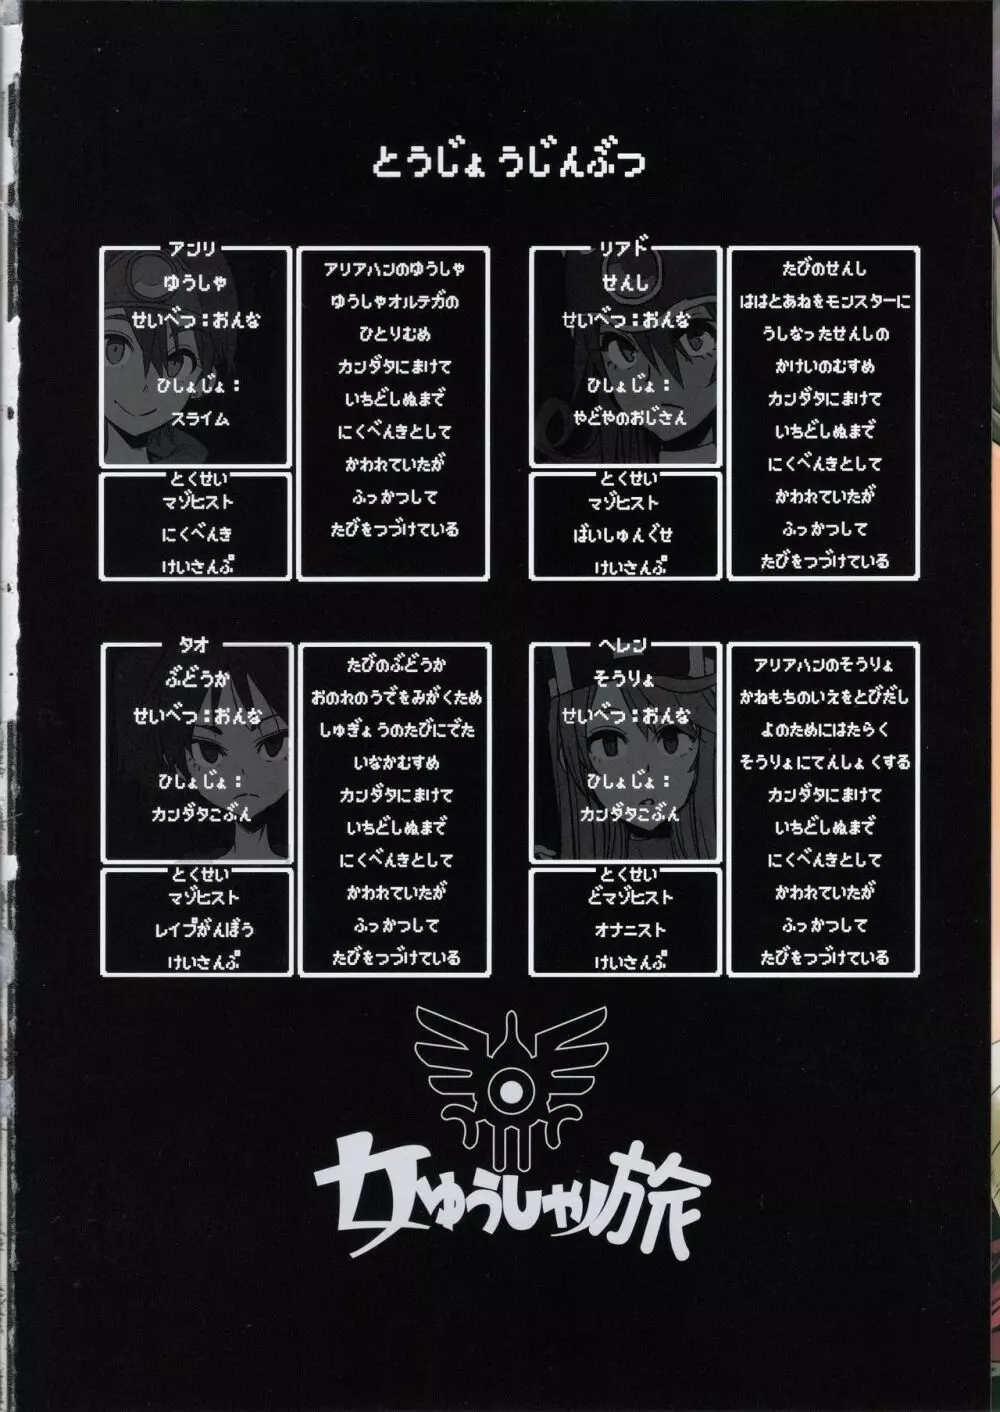 とうじょうじんぶつ
アンリ
ゆうしゃ
せいべつ：おんな
ひしょじょ：
スライム
とくせい
マゾヒスト
にくべんき
けいさんぷ
アリアハンのゆうしゃ
ゆうしゃオルテガの
ひとりむめ
カンダタにまけて
いちどしぬまで
にくべんきとして
かわれていたが
ふっかつして
たびをつづけている
リアド
せんし
せいべつ：おんな
ひしょじょ：
やどやのおじさん
とくせい
マゾヒスト
ばいしゅんぐせ
けいさんぷ
たびのせんし
ははとあねをモンスターに
うしなったせんしの
かけいのむすめ
カンダタにまけて
いちどしぬまで
にくべんきとして
かわれていたが
ふっかつして
たびをつづけている
タオ
ぶどうか
せいべつ：おんな
ひしょじょ：
カンダタこぶん
とくせい
マゾヒスト
レイプがんぼう
けいさんぷ
たびのぶどうか
おのれのうでをみがくため
しゅぎょうのたびにでた
いなかむすめ
カンダタにまけて
いちどしぬまで
にくべんきとして
かわれていたが
ふっかつして
たびをつづけている
ヘレン
そうりょ
せいべつ：おんな
ひしょじょ：
カンダタこぶん
とくせい
どマゾヒスト
オナニスト
けいさんぷ
アリアハンのそうりょ
かねもちのいえをとびだし
よのためにはたらく
そうりょにてんしょくする
カンダタにまけて
いちどしぬまで
にくべんきとして
かわれていたが
ふっかつして
たびをつづけている
女ゆうしゃの旅